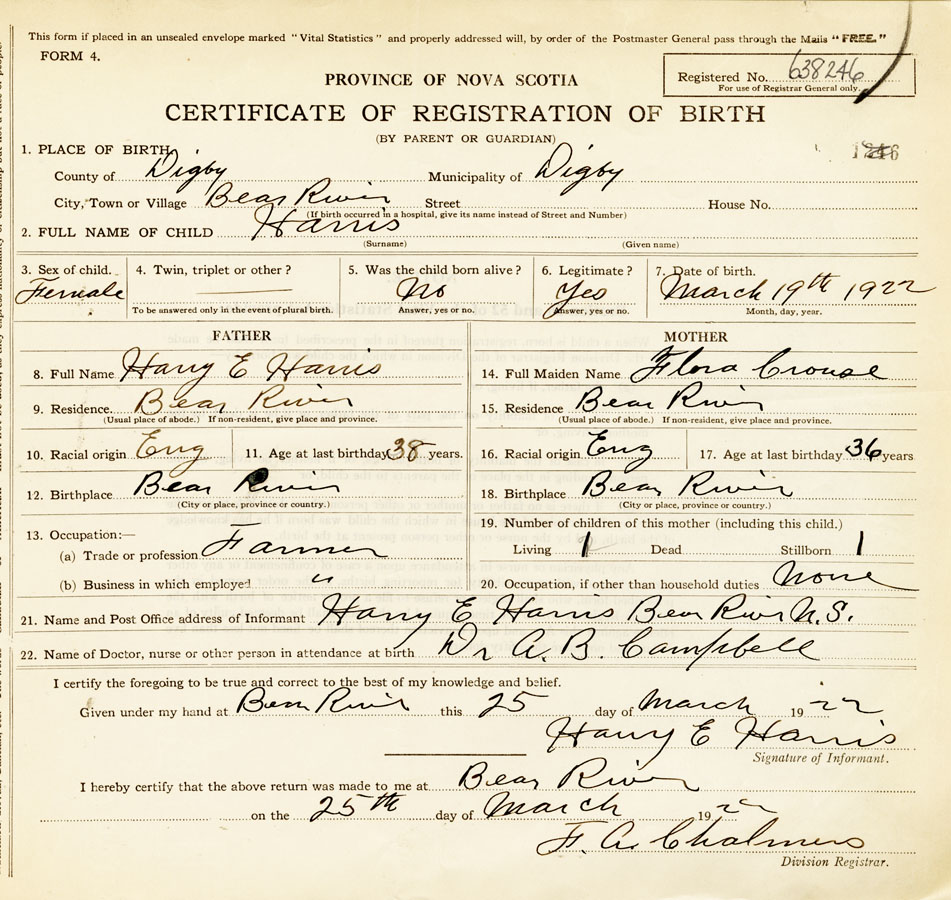 This form if placed in an unsealed envelope marked "Vital Statistics" and properly addressed will, by order of the Postmaster General pass through the Mails "FREE."
FORM 4.
PROVINCE OF NOVA SCOTIA
Registered No. 638246
For use of Registrar General only.
CERTIFICATE OF REGISTRATION OF BIRTH
(BY PARENT OR GUARDIAN)
1. PLACE OF BIRTH
County of Digby Municipality of Digby
City, Town or Village Bear River Street House No.
(If birth occurred in a hospital, give its name instead of Street and Number)
2. FULL NAME OF CHILD Harris
(Surname) (Given name)
3. Sex of child. 4. Twin, triplet or other? 5. Was the child born alive? 6. Legitimate? 7. Date of birth.
Female No Yes March 19th 1922
To be answered only in the event of plural birth. Answer, yes or no. Answer, yes or no. Month, day, year.
FATHER MOTHER
8. Full Name Harry E Harris 14. Full Maiden Name Flora Crouse
9. Residence. Bear River 15. Residence Bear River
(Usual place of abode.) If non-resident, give place and province. (Usual place of abode.) If non-resident, give place and province.
10. Racial origin Eng 11. Age at last birthday 38 years. 16. Racial origin Eng 17. Age at last birthday 36 years
12. Birthplace Bear River 18. Birthplace Bear River
(City or place, province or country.) (City or place, province or country.)
13. Occupation:— 19. Number of children of this mother (including this child.)
(a) Trade or profession Farmer Living 1 Dead Stillborn 1
(b) Business in which employed " 20. Occupation, if other than household duties None
21. Name and Post Office address of Informant Harry E Harris Bear River N.S.
22. Name of Doctor, nurse or other person in attendance at birth Dr A. B. Campbell
I certify the foregoing to be true and correct to the best of my knowledge and belief.
Given under my hand at Bear River this 25 day of March 1922
Harry E Harris
Signature of Informant.
I hereby certify that the above return was made to me at Bear River
on the 25th day of March 1922
F. A. Chalmers
Division Registrar.